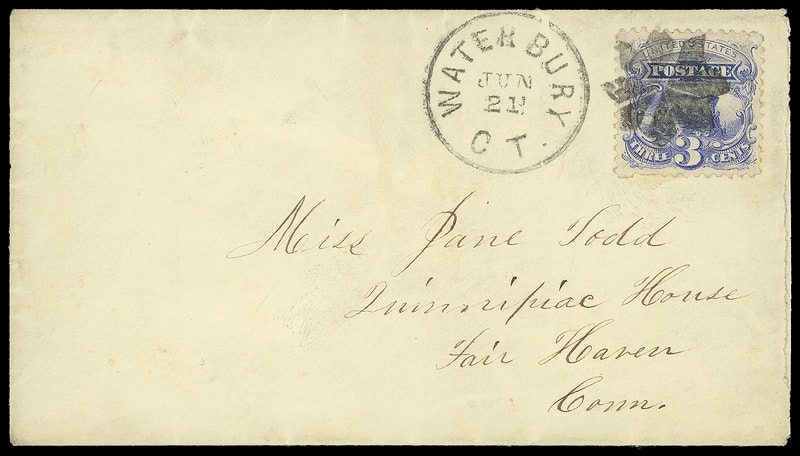 WATERBURY
JUN
21
CT.
UNITED STATES
POSTAGE
THREE 3 CENTS
Miss Jane Todd
Quinnipiac House
Fair Haven
Conn.